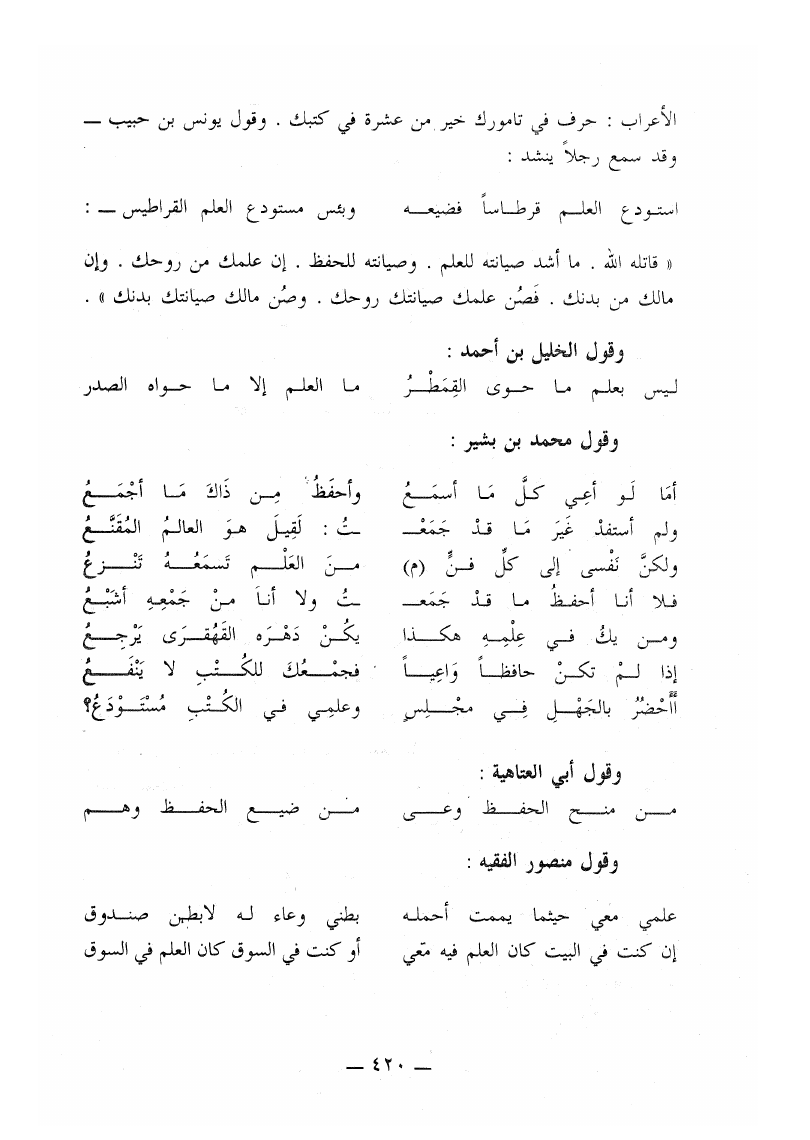 الأعراب : حرف في تامورك خير من عشرة في كتبك . وقول يونس بن حبيب —
وقد سمع رجلاً ينشد :
استودع العلم قرطاساً فضيعه وبئس مستودع العلم القراطيس — :
« قاتله الله . ما أشد صيانته للعلم . وصيانته للحفظ . إن علمك من روحك . وإن
مالك من بدنك . فَصُن علمك صيانتك روحك . وصُن مالك صيانتك بدنك » .
وقول الخليل بن أحمد :
ليس بعلم ما حوى القِمَطْرُ ما العلم إلا ما حواه الصدر
وقول محمد بن بشير :
أمَا لَو أعِي كلَّ مَا أسمَعُ وأحفَظُ مِن ذَاكَ مَا أجْمَعُ
ولم أستفدْ غَيرَ مَا قدْ جَمَعْـ ـتُ : لَقِيلَ هوَ العالمُ المُقَنَّعُ
ولكنَّ نَفْسى إلى كلِّ فنٍّ (م) منَ العَلْم تَسمَعُهُ تَنْزعُ
فلا أنا أحفظُ ما قدْ جَمَعـ ـتُ ولا أناَ منْ جَمْعِهِ أشْبَعُ
ومن يكُ في عِلْمِهِ هكذا يكُنْ دَهْرَه القَهْقرَى يَرْجعُ
إذا لمْ تكنْ حافظاً وَاعِياً فجمْعُكَ للكُتْبِ لا يَنْفَعُ
أأَحْضرُ بالجَهْلِ فِي مجْلِسٍ وعلمِي في الكُتْبِ مُسْتَوْدَعُ؟
وقول أبي العتاهية :
من منح الحفظ وعى من ضيع الحفظ وهم
وقول منصور الفقيه :
علمي معي حيثما يممت أحمله بطني وعاء له لابطن صندوق
إن كنت في البيت كان العلم فيه مَعي أو كنت في السوق كان العلم في السوق
— ٤٢٠ —